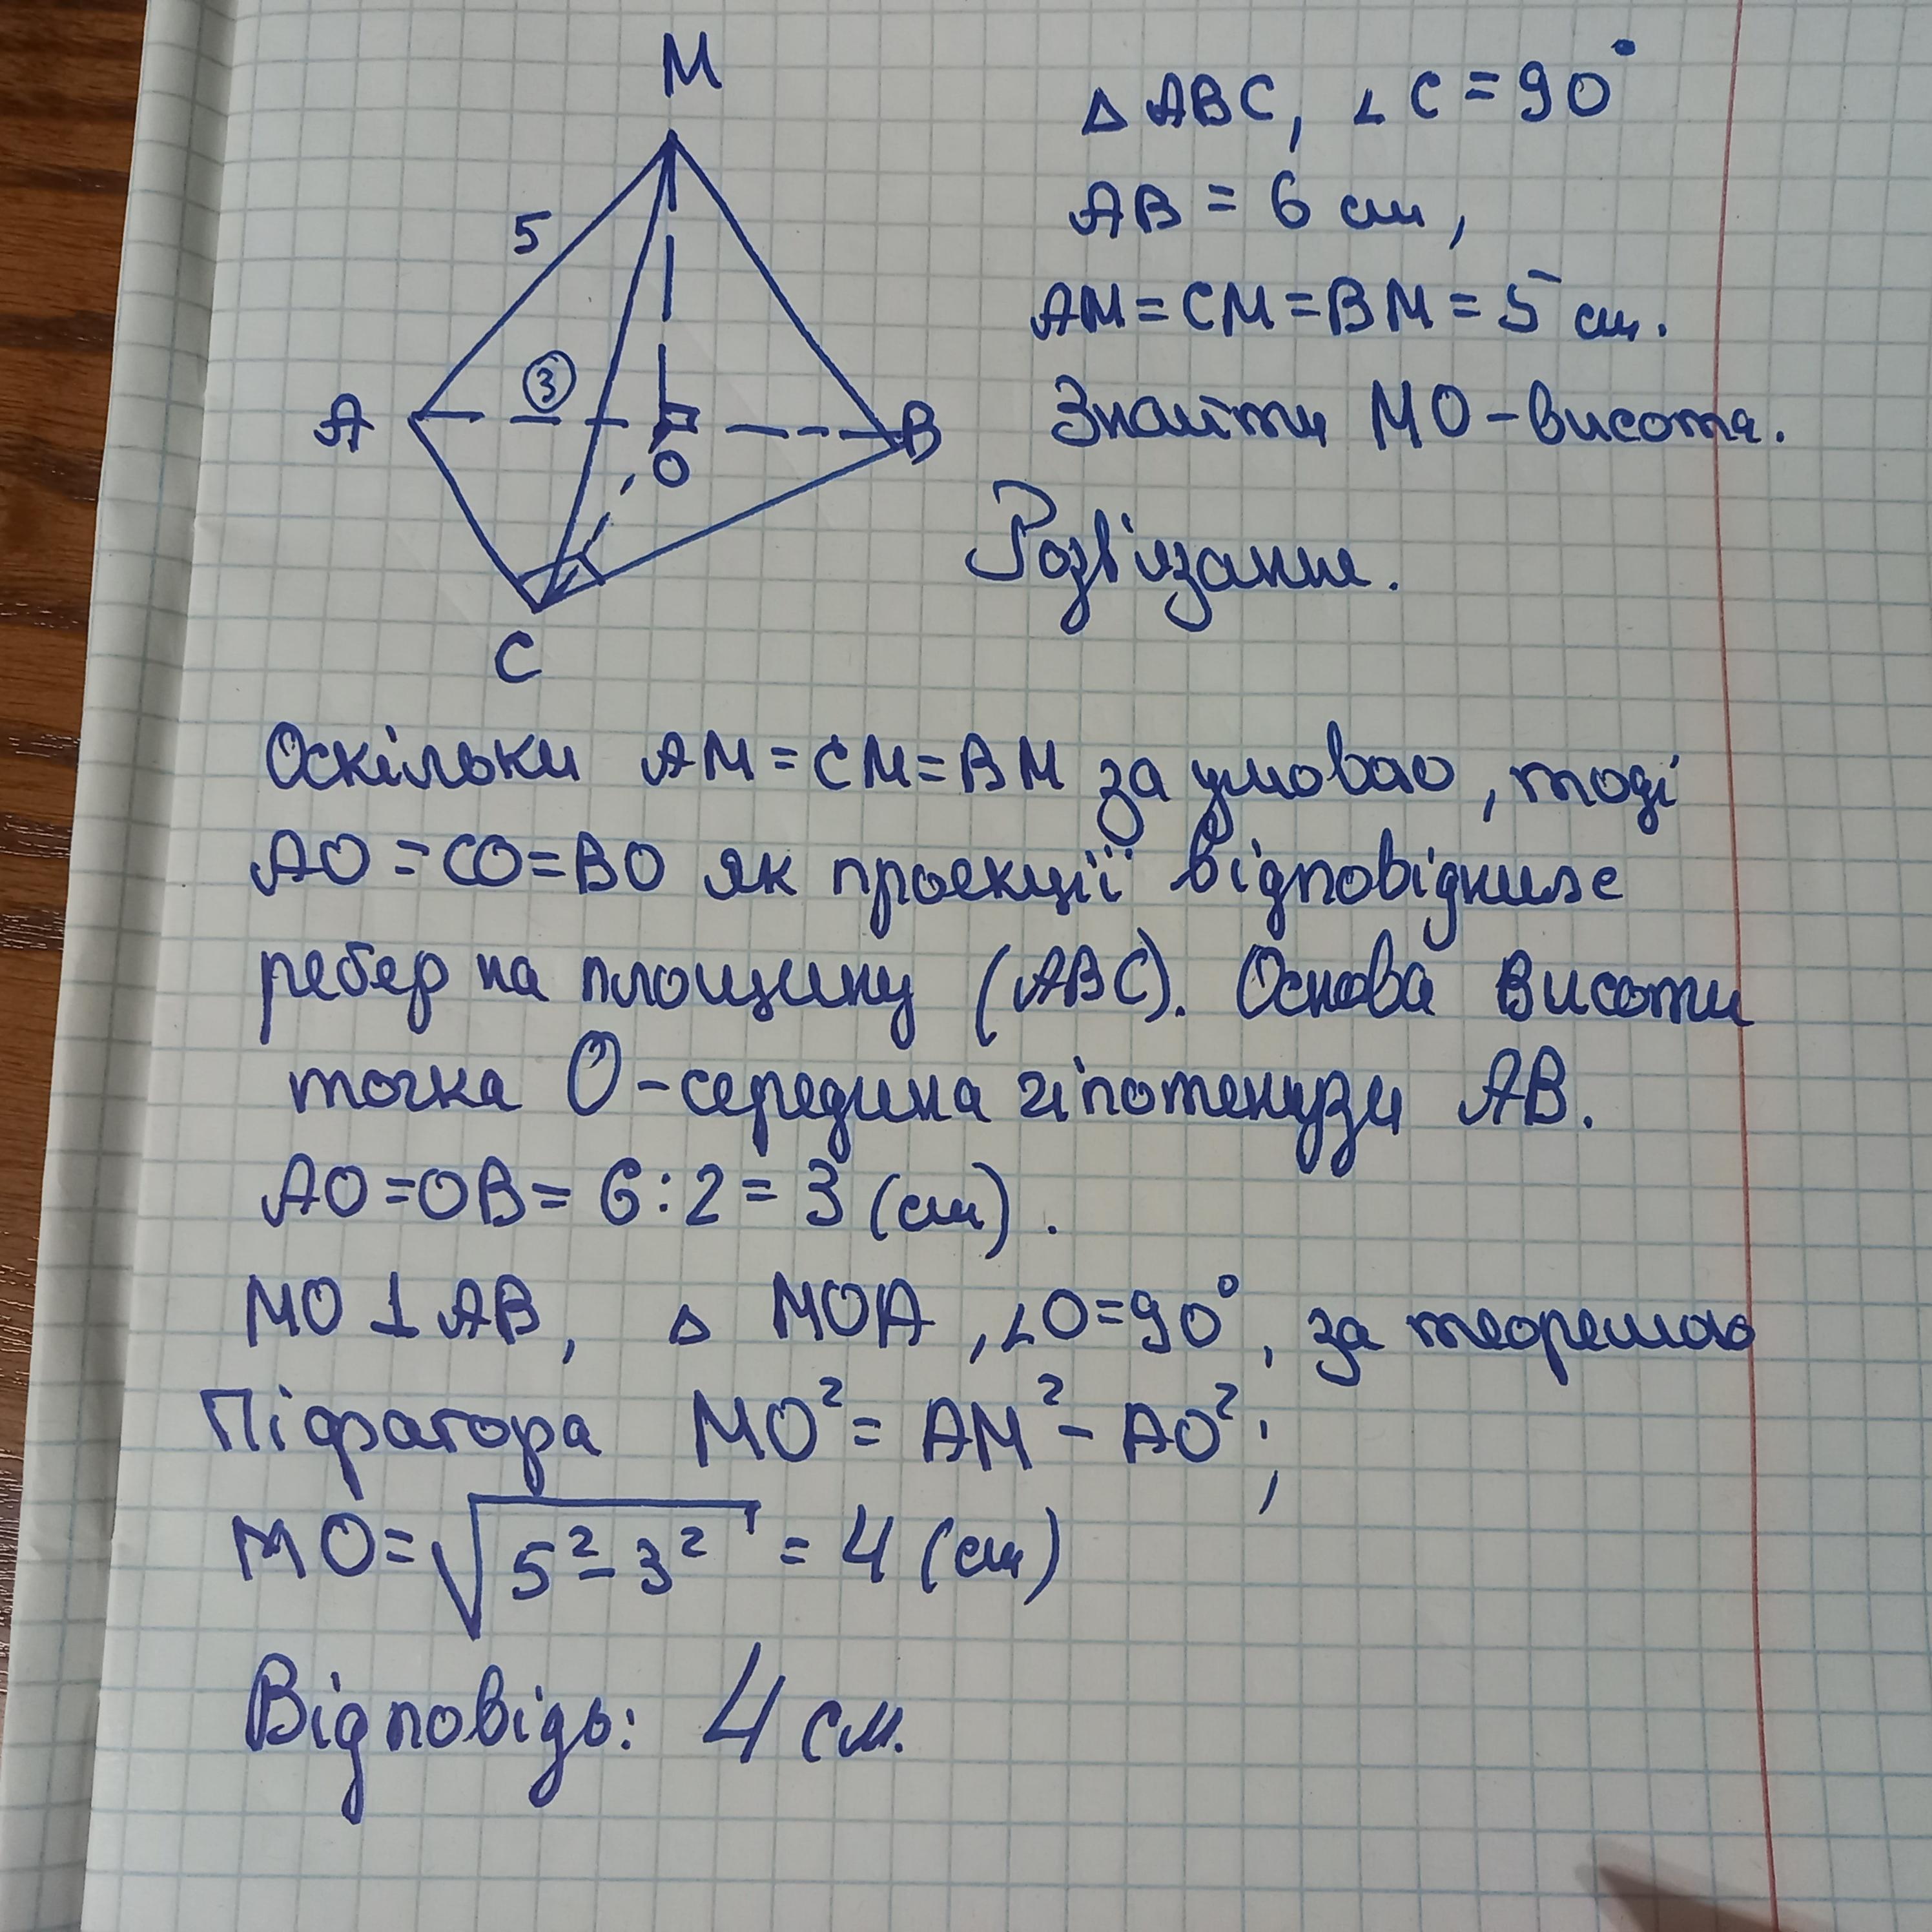 M
△ ABC, ∠C = 90°
AB = 6 см,
5
AM = CM = BM = 5 см.
3
A
B
O
Знайти MO - висота.
Розв'язання.
C
Оскільки AM = CM = BM за умовою, тоді
AO = CO = BO як проекції відповідних
ребер на площину (ABC). Основа висоти
точка O - середина гіпотенузи AB.
AO = OB = 6 : 2 = 3 (см).
MO ⊥ AB, △ MOA, ∠O = 90°, за теоремою
Піфагора MO² = AM² - AO²;
MO = √5² - 3² = 4 (см)
Відповідь: 4 см.